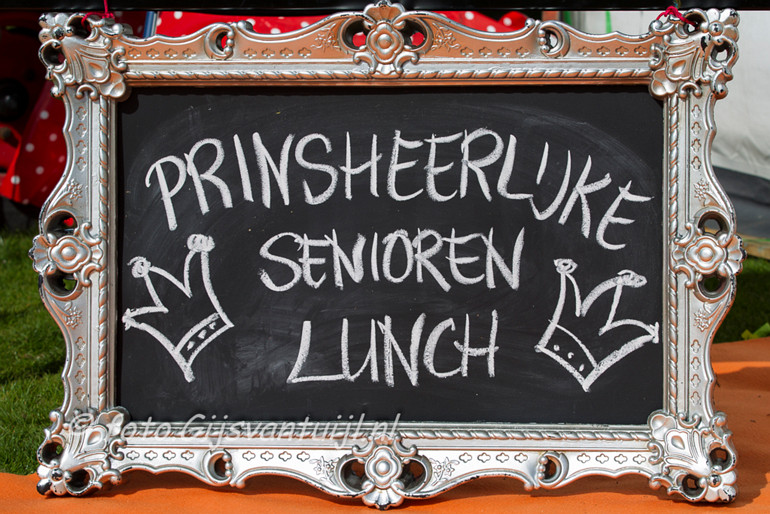 PRINSHEERLIJKE
SENIOREN
LUNCH
© foto Gijsvantuijl.nl